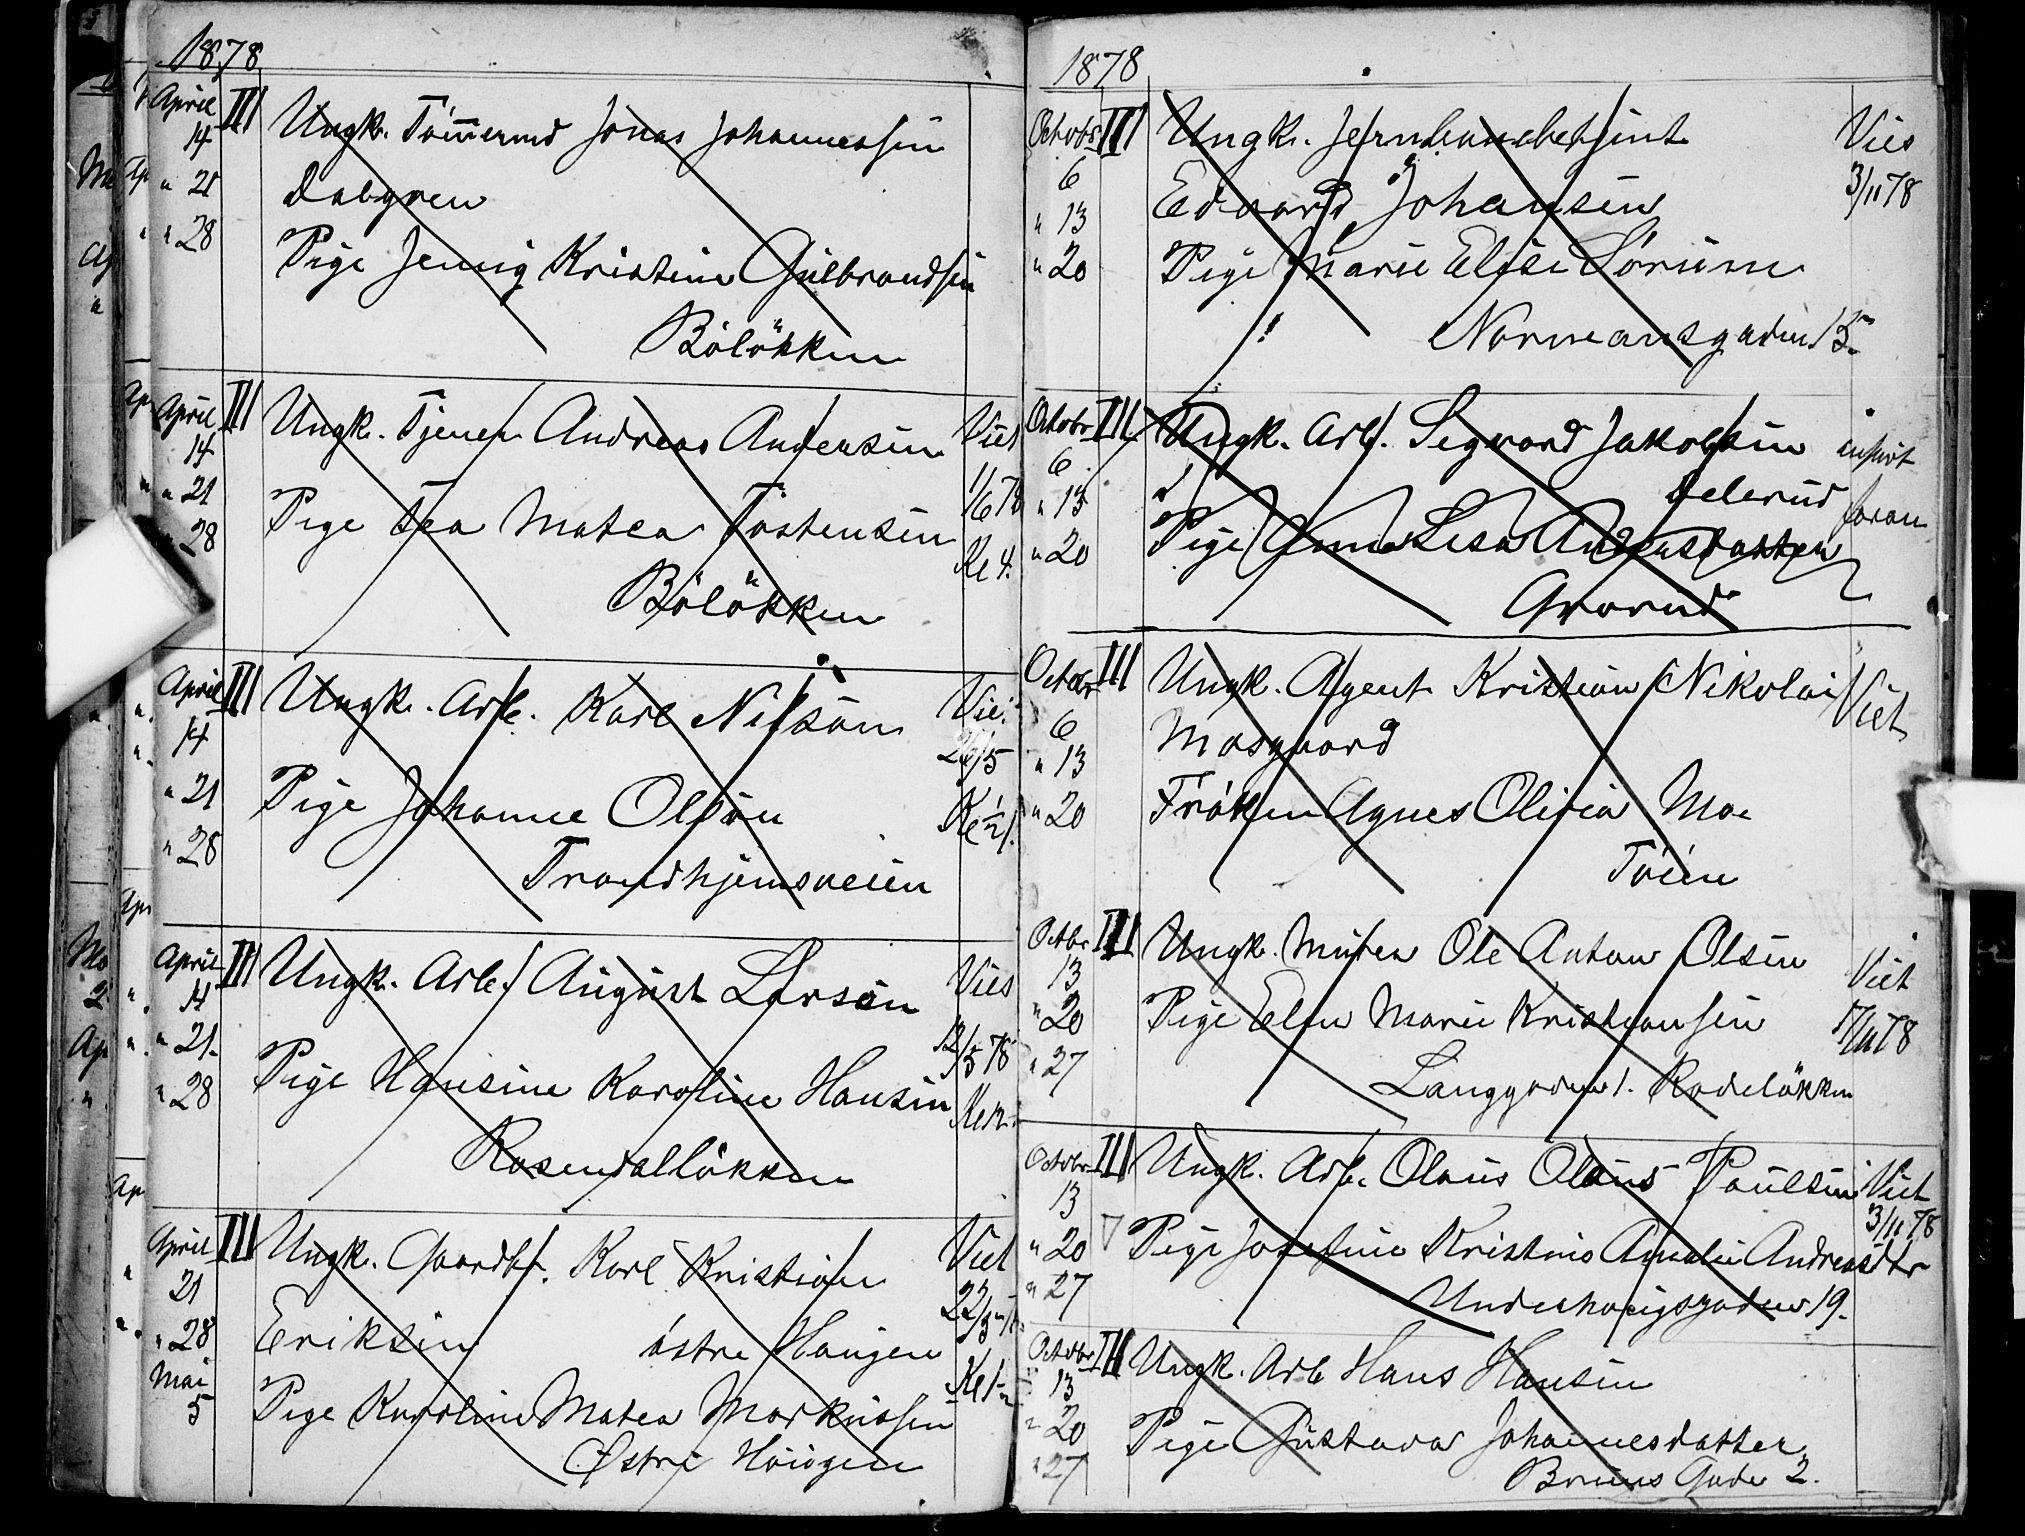 1878
April III Ungk. Tömmermd Jonas Johannessen
14
" 21 Dalgren
" 28 Pige Jennÿ Kristine Gulbrandsen
Bölökken
April III Ungk. Tjener Andreas Andersen Viet
14 1/6 78
" 21 Pige Tea Matea Tostensen
" 28 Kl 4.
Bölökken
April III Ungk. Arb. Karl Nilsön Vie.
14 26/5
" 21 Pige Johanne Olsön Kl
" 28 Trondhjemsveien
April III Ungk. Arb. August Larsen Vies
14 12/5 78
" 21. Pige Hansine Karoline Hansen
" 28 Kl
Rosendalløkken
April III Ungk. Gaardbr. Karl Kristian Viet
21 22/5
" 28 Eriksen østre Haugen
Mai Kl
5 Pige Karoline Matea Markussen
Østre Haugen
1878
Octobr III Ungk. Jernbanebetjent Vies
6 Edvard Johansen 3/11 78
" 13
" 20 Pige Marie Elise Sörum
Normansgaden 15
Octobr III Ungk. Arb. Segvard Jakobsen anført
6 foran
" 13
" 20 Pige Anna Lisa Andersdatter
Grorud
Octobr III Ungk. Agent Kristian Nikolai Viet
6 Mosgaard
" 13
" 20 Frøken Agnes Olivia Moe
Töien
Octbr III Ungk. Murer Ole Anton Olsen Viet
13
" 20 Pige Elen Marie Kristiansen
" 27 Langgaden 1. Rodeløkken
Octobr III Ungk. Arb. Olaus Olaus Paulsen Viet
13 3/11 78
" 20 Pige Josefine Kristine Amalie Andreasdtr
" 27 Underhaugsgaden 19.
Octobr III Ungk. Arb Hans Hansen
13
" 20 Pige Gustava Johannesdatter
" 27 Bruuns Gade 2.